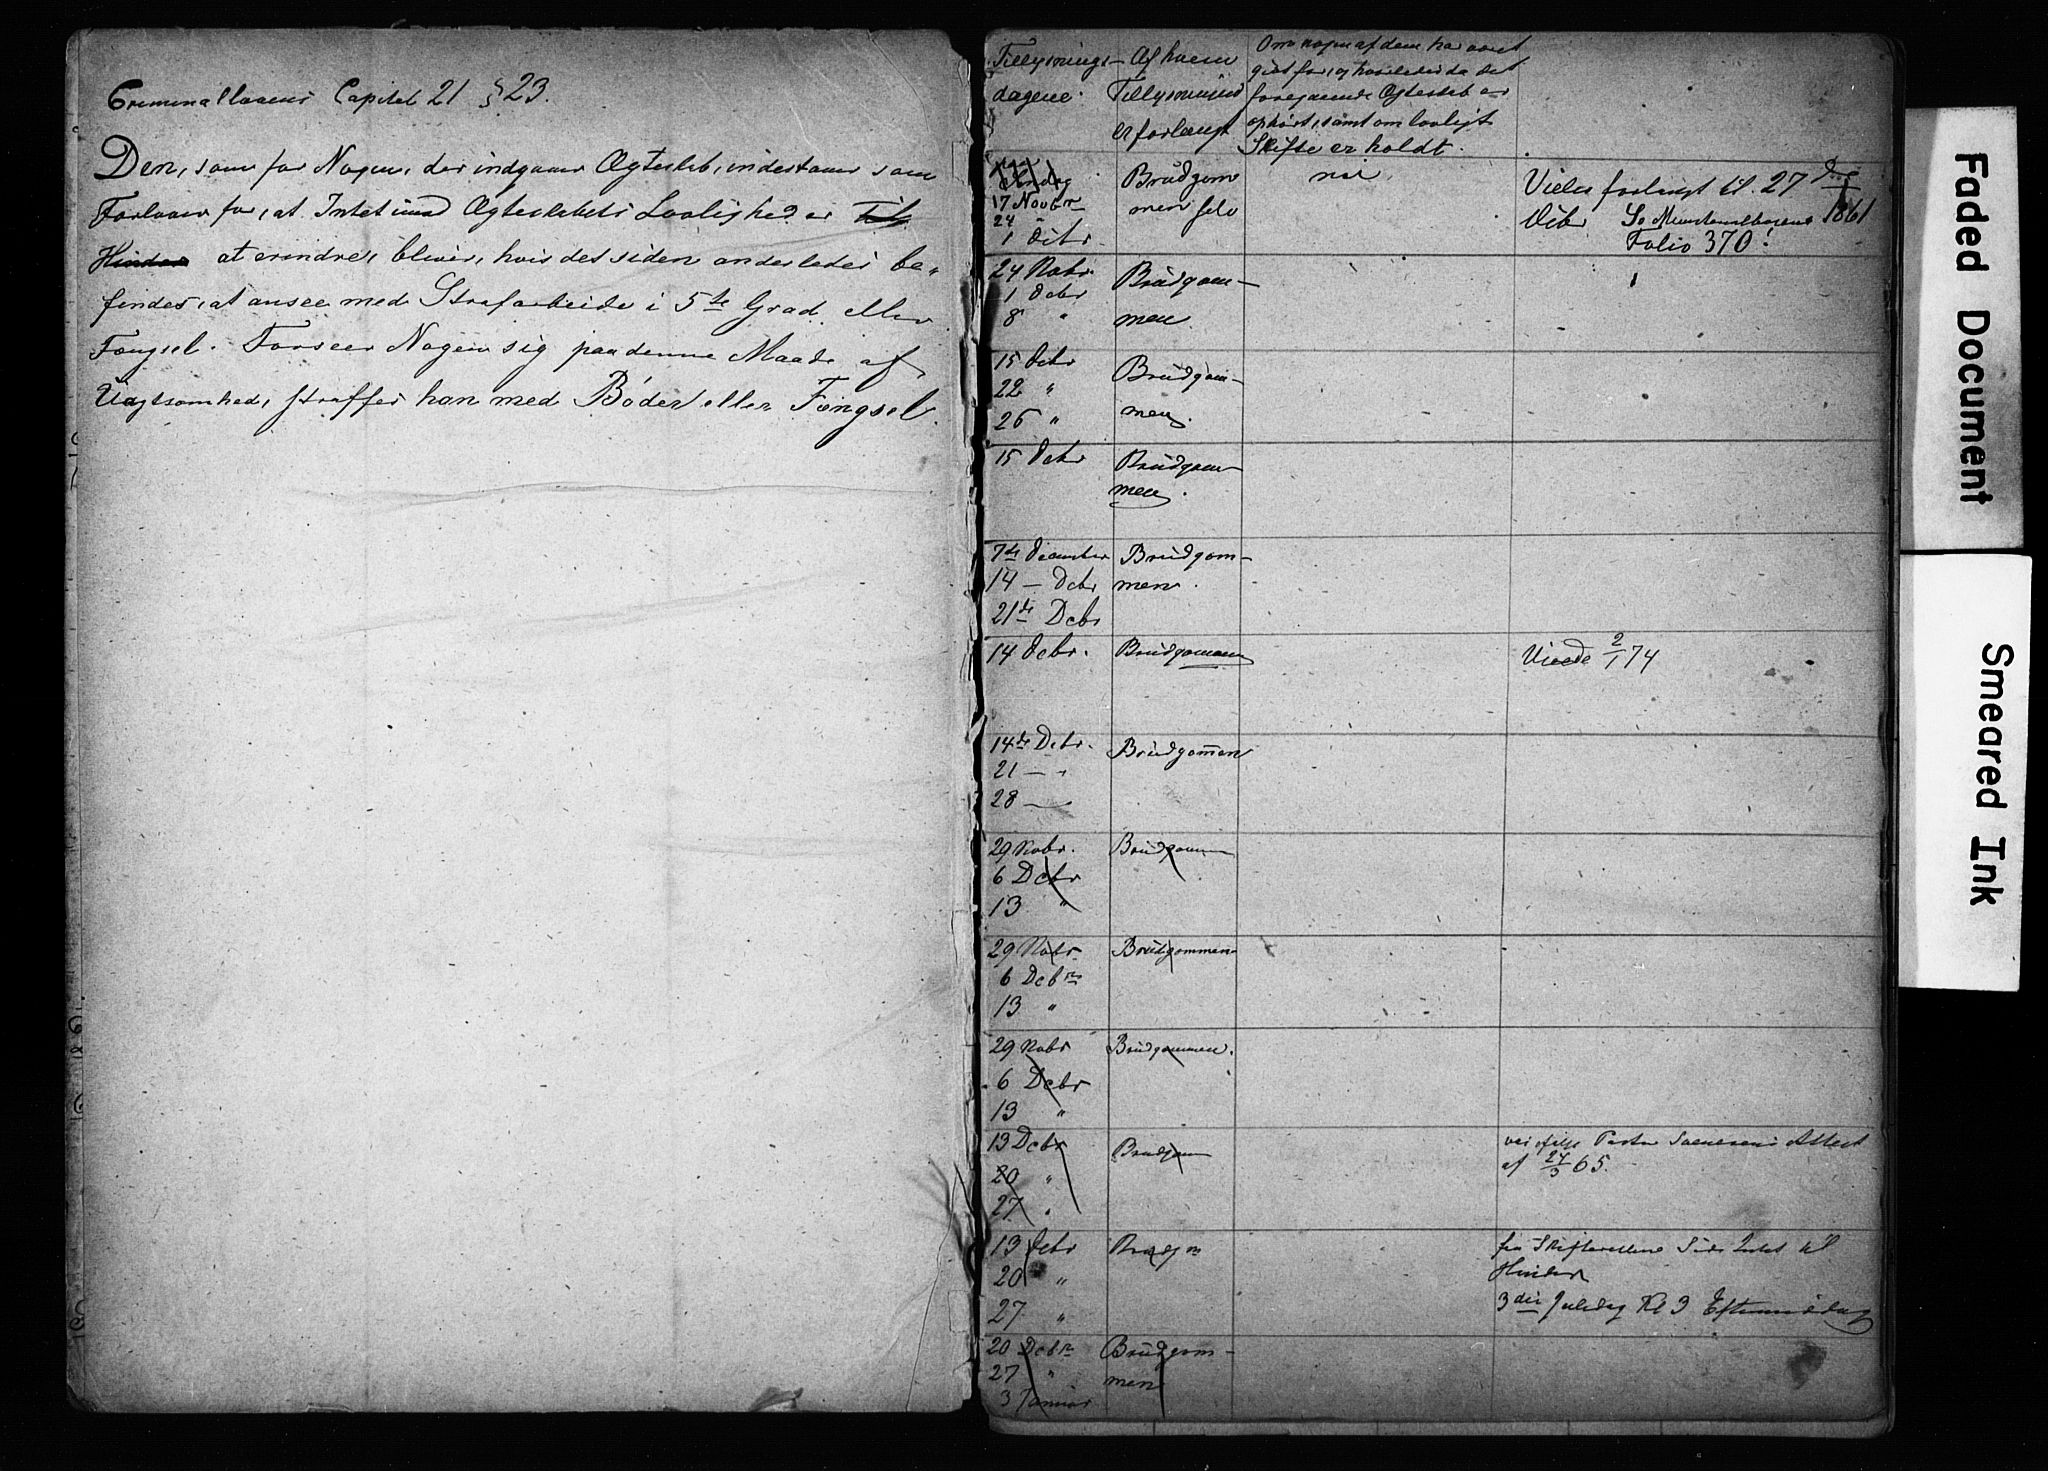 Criminallovens Capitel 21 § 23.
Den, som for Nogen, der indgaaer Ægteskab, indestaaer som
Forlover for, at Intet imod Ægteskabets Lovlighed er Til
Hinder at erindre, bliver, hvis det siden anderledes be-
findes, at ansee med Strafarbeide i 5te Grad eller
Fængsel. Forseer Nogen sig paa denne Maade af
Uagtsomhed, straffes han med Bøder eller Fængsel.
Tillysnings-
dagene.
Af hvem
Tillysningen
er forlangt
Om nogen af dem har været
gift før, og hvorledes da det
foregaaende Ægteskab er
ophørt, samt om lovligt
Skifte er holdt.
17 Novbr
24 "
1 Dcbr.
Brudgom
men selv
nei
Vielse forlangt til 27
Dcbr
Folio 370!
1861
24 Nobr.
1 Dcbr
8 "
Brudgom-
men
15 Dcbr
22 "
26 "
Brudgom-
men.
15 Dcbr
Brudgom-
men.
7de December
14 — Dcbr
21de Dcbr
Brudgom-
men.
14 Dcbr.
Brudgommen
Viede 2/1 74
14de Dcbr.
21 — "
28 —
Brudgommen
29 Nobr.
6 Dcbr
13 "
Brudgom
29 Nobr
6 Dcbr
13 "
Brudgommen
29 Nobr
6 Dcbr
13 "
Brudgommen.
13 Dcbr
20 "
27 "
Brudgom
Pastor Attest
af 24/3 65.
13 Dcbr
20 "
27 "
Brudgm
fra Skifteretten Intet til
Hinder
3die Juledag Kl 3 Eftermiddag
20 Dcbr
27 "
3 Januar
Brudgom-
men
Faded Document
Smeared Ink